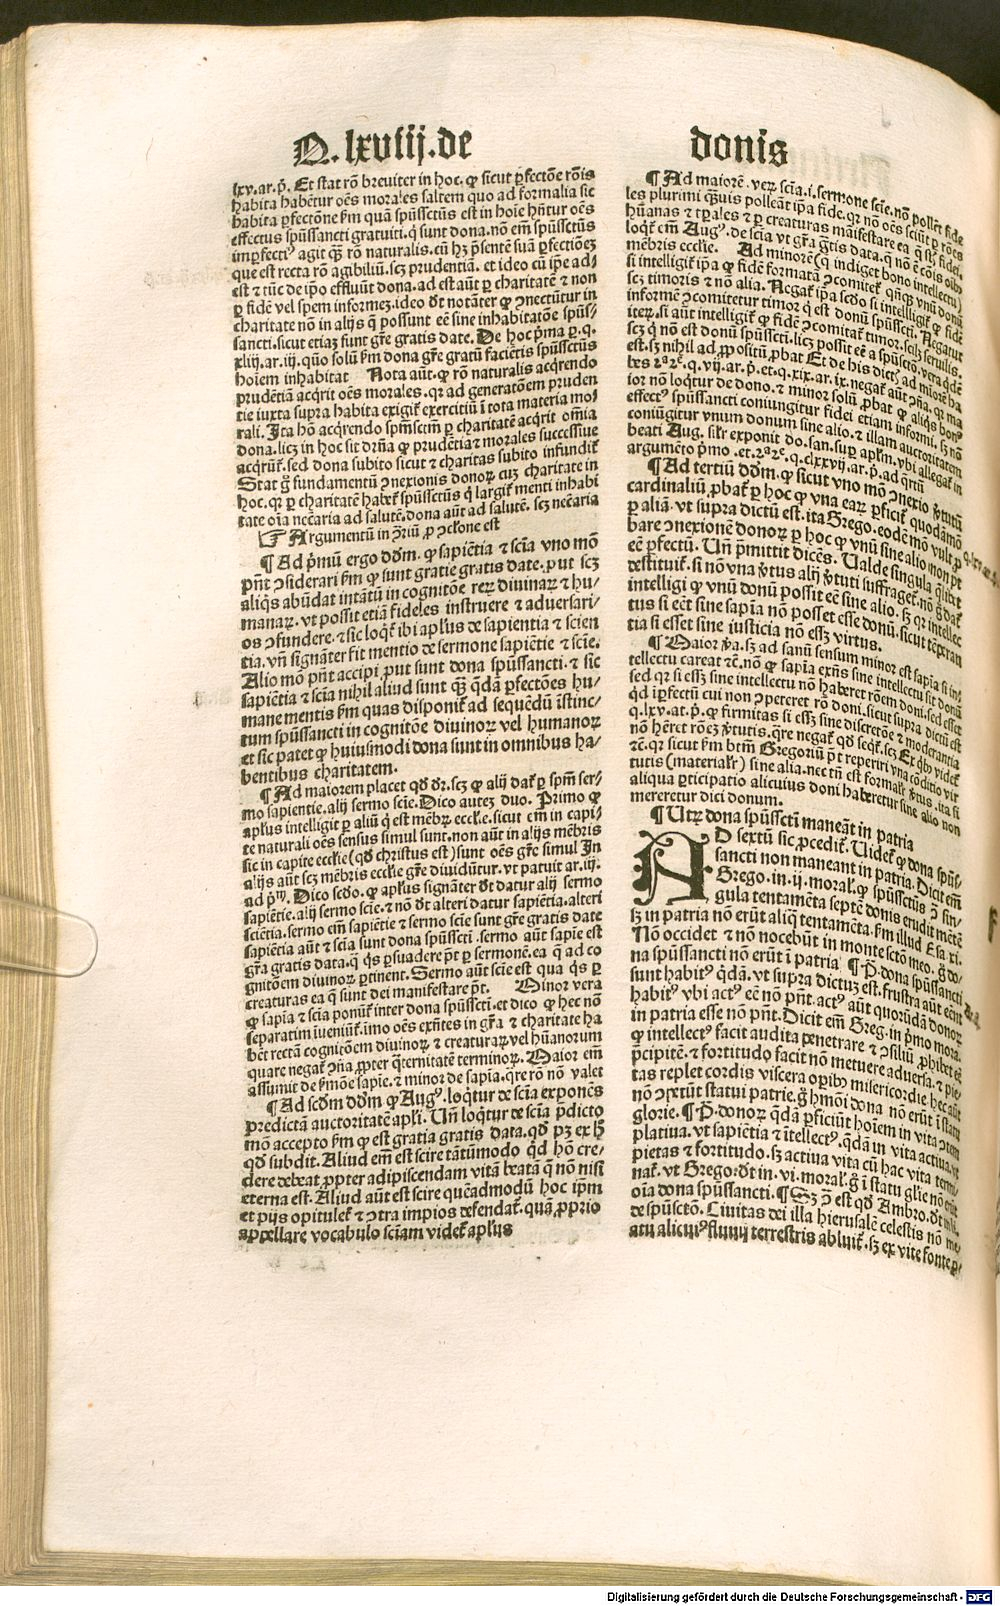 Q. lxviij. de donis
lxv. ar. p̄. Et stat rō breviter in hoc. ꝙ sicut ꝑfectōe rōis
habita habētur oēs morales saltem quo ad formalia sic
habita ꝑfectōne ẜm quā spūssctūs est in hoīe hn̄tur oēs
effectus spūssancti gratuiti. q̇ sunt dona. nō em̄ spūssctūs
imꝑfectiꝰ agit q̄ꝫ rō naturalis. cū hꝫ p̄sentē suā ꝑfectiōeꝫ
que est recta rō agibiliū. scꝫ prudentiā. et ideo cū ip̄e ad-
est ⁊ tūc de ip̄o effluūt dona. ad est aūt ꝑ charitatē ⁊ non
ꝑ fidē vel spem informeꝫ. ideo dr̄ notāter ꝙ ↄnectūtur in
charitate nō in alijs q̄ possunt eē sine inhabitatōe spūs-
sancti. sicut etiaꝫ sunt gr̄e gratis date. De hoc p̄ma ꝑ. q.
xliij. ar. iij. quō solū ẜm dona gr̄e gratū faciētis spūssctūs
hoīem inhabitat Nota aūt. ꝙ rō naturalis acq̇rendo
prudētiā acq̇rit oēs morales. qꝛ ad generatōem pruden
tie iuxta supra habita exigit̄ exercitiū ī tota materia mo
rali. Ita hō acq̇rendo spm̄sctm̄ ꝑ charitatē acq̇rit om̄ia
dona. licꝫ in hoc sit dr̄na ꝙ prudētia ⁊ morales successiue
acq̇rūt̄. sed dona subito sicut ⁊ charitas subito infundit̄
Stat g̊ fundamentū ↄnexionis donoꝝ cuꝫ charitate in
hoc. qꝛ ꝑ charitatē habet̄ spūssctūs q̇ largit̄ menti inhabi
tate oīa necc̄aria ad salutē. dona aūt ad salutē. scꝫ necc̄aria
☞ Argumentū in ↄ̄riū ꝓ ↄclōne est
¶ Ad p̄mū ergo dd̄m. ꝙ sapiētia ⁊ scīa vno mō
pn̄t ↄsiderari ẜm ꝙ sunt gratie gratis date. ꝓut scꝫ
aliq̇s abūdat intātū in cognitōe reꝝ diuinaꝝ ⁊ hu-
manaꝝ. vt possit etiā fideles instruere ⁊ aduersāri-
os ↄfundere. ⁊ sic loq̇t̄ ibi aplus de sapientia ⁊ scien
tia. vn̄ signāter fit mentio de sermone sapiētie ⁊ scīe.
Alio mō pn̄t accipi ꝓut sunt dona spūssancti. ⁊ sic
sapiētia ⁊ scīa nihil aliud sunt q̄ꝫ q̄dā ꝑfectōes hu-
mane mentis ẜm quas disponit̄ ad sequēdū īstinc-
tum spūssancti in cognitōe diuinoꝝ vel humanoꝝ
et sic patet ꝙ huiusmodi dona sunt in omnibus ha-
bentibus charitatem.
¶ Ad maiorem placet qd̄ dr̄. scꝫ ꝙ alij dat̄ ꝑ spm̄ ser-
mo sapientie. alij sermo scīe. Dico auteꝫ duo. Primo ꝙ
aplus intelligit ꝑ aliū q̇ est mēbꝝ ecclīe. sicut em̄ in capi-
te naturali oēs sensus simul sunt. non aūt in alijs mēbris
sic in capite ecclīe (qd̄ christus est) sunt oēs gr̄e simul In
alijs aūt scꝫ mēbris ecclīe gr̄e diuidūtur. vt patuit ar. iij.
ad p̄m. Dico scd̄o. ꝙ aplus signāter dr̄t datur alij sermo
sapiētie. alij sermo scīe. ⁊ nō dr̄t alteri datur sapiētia. alteri
sciētia. sermo em̄ sapiētie ⁊ sermo scīe sunt gr̄e gratis date
sapiētia aūt ⁊ scīa sunt dona spūssctī. sermo aūt sapīe est
gr̄a gratis data. q̄ q̇s ꝑsuadere pōt ꝑ sermonē. ea q̄ ad co
gnitōem diuinoꝝ ꝑtinent. Sermo aūt scīe est qua q̇s ꝑ
creaturas ea q̄ sunt dei manifestare pōt. Minor vera
ꝙ sapīa ⁊ scīa ponūt̄ inter dona spūssctī. et dico ꝙ hec nō
separatim īueniūt̄. imo oēs exn̄tes in gr̄a ⁊ charitate ha
bēt rectā cognitōem diuinoꝝ ⁊ creaturaꝝ vel hūanorum
quare negat̄ ↄn̄a ꝓpter q̄ternitatē terminoꝝ. Maior em̄
assumit de ẜmōe sapīe. ⁊ minor de sapīa. q̄re rō nō valet
¶ Ad scd̄m dd̄m ꝙ Augꝰ. loq̇tur de scīa exponēs
predictā auctoritatē apli. Un̄ loq̇tur de scīa p̄dicto
mō accepto ẜm ꝙ est gratia gratis data. qd̄ pꝫ ex hͦ
qd̄ subdit. Aliud em̄ est scire tātūmodo q̇d hō cre-
dere debeat ꝓpter adipiscendam vitā beatā q̄ nō nisi
eterna est. Aliud aūt est scire quēadmodū hoc ip̄m
et pijs opitulet̄ ⁊ ↄtra impios defendat̄. quā ꝓprio
appellare vocabulo scīam videt̄ aplus
¶ Ad maiorē. verꝫ scīa. i. sermone scīe. nō pollēt fide
les plurimi q̄uis polleāt ip̄a fide. qꝛ nō oēs sciūt ꝑ rōes
hūanas ⁊ tꝑales ⁊ ꝑ creaturas māifestare ea q̄ sꝫ fidei.
loq̇t̄ em̄ Augꝰ. de scīa vt gr̄a gratis data. q̄ nō ē cōis oībꝰ
mēbris ecclīe. Ad minorē (q̇ indiget bono intellectu)
si intelligit̄ ip̄a ꝙ fidē formatā ↄcomitet̄ qn̄qꝫ vnū donū
scꝫ timoris ⁊ nō alia. Negat̄ ip̄a scd̄o si intelligit̄ ꝙ fidē
informē ↄcomitetur timor q̇ est donū spūssctī. Negatur
iterꝫ. si aūt intelligit̄ ꝙ fidē ↄcomitat̄ timor. scilꝫ seruilis.
scꝫ q̇ nō est donū spūssctī. licꝫ possit eē a spūsctō. vera q̇dē
est. sꝫ nihil ad ꝓpositū ꝓbat Et de his dictꝫ ad maiorē ha
bes 2ᵃ2ᵉ. q. vij. ar. p̄. et. q. xix. ar. ix. negat̄ aūt ↄn̄a. qꝛ ma
ior nō loq̇tur de dono. ⁊ minor solū ꝓbat ꝙ aliq̇s bonꝰ
effectꝰ spūssancti coniungitur fidei etiam informi. sꝫ nō
coniūgitur vnum donum sine alio. ⁊ illam auctoritatem
beati Aug. sil̄r exponit do. san. suꝑ aplm̄. vbi allegat̄ in
argumēto p̄mo. et. 2ᵃ2ᵉ. q. clxxvij. ar. p̄. ad q̇rtū
¶ Ad tertiū dd̄m. ꝙ sicut vno mō ↄnexio v̄tutū
cardinaliū. ꝓbat̄ ꝑ hoc ꝙ vna eaꝝ ꝑficit̄ quodāmō
ꝑ aliā. vt supra dictū est. ita Grego. eodē mō vult ꝓ
bare ↄnexionē donoꝝ ꝑ hoc ꝙ vnū sine alio non pōt
eē ꝑfectū. Un̄ p̄mittit dicēs. Ualde singula q̄libet
destituit̄. si nō vna v̄tus alij v̄tuti suffraget̄. nō g̊ dat̄
intelligi ꝙ vnū donū possit eē sine alio. sꝫ qꝛ intellec
tus si eēt sine sapīa nō posset esse donū. sicut tēꝑan
tia si esset sine iusticia nō essꝫ virtus.
¶ Maior v̄a. sꝫ ad sanū sensum minor est sapīa si in-
tellectu careat ⁊c̄. nō ꝙ sapīa exn̄s sine intellectu sit donū
sed qꝛ si essꝫ sine intellectu nō haberet rōem doni. sed esset
q̇d iꝑfectū cui non ↄpeteret rō doni. sicut supra dictū est
q. lxv. at. p̄. ꝙ firmitas si essꝫ sine discretōe ⁊ moderantia
nō hēret rōeꝫ v̄tutis. q̄re negat̄ qd̄ seq̇t̄. scꝫ Et q̇bꝰ videt̄
⁊c̄. qꝛ sicut ẜm btm̄ Gregoriū p̄t reperiri vna cōditio vir
tutis (material̄r) sine alia. nec tn̄ est formal̄r v̄tus. ita si
aliqua ꝑticipatio alicuius doni haberetur sine alio non
mereretur dici donum.
¶ Utꝝ dona spūssctī maneāt in patria
AD sextū sic ꝓcedit̄. Uidet̄ ꝙ dona spūs-
sancti non maneant in patria. Dicit em̄
Grego. in. ij. moral. ꝙ spūssctūs ↄ̄ sin-
gula tentamēta septē donis erudit mētē
sꝫ in patria nō erūt aliq̄ tentamēta. ẜm illud Esa. xi.
Nō occidet ⁊ nō nocebūt in monte sctō meo. g̊ do-
na spūssancti nō erūt ī patria ¶ P̄. dona spūssancti
sunt habitꝰ q̇dā. vt supra dictuꝫ est. frustra aūt eēnt
habitꝰ vbi actꝰ eē nō pn̄t. actꝰ aūt quorūdā donoꝝ
in patria esse nō pn̄t. Dicit em̄ Greg. in p̄mo moral.
ꝙ intellectꝰ facit audita penetrare ⁊ ↄsiliū ꝓhibet eē
p̄cipitē. ⁊ fortitudo facit nō metuere aduersa. ⁊ pie-
tas replet cordis viscera oꝑibꝰ misericordie. hec aūt
nō ↄpetūt statui patrie. g̊ hm̄oi dona nō erūt ī statu
glorie. ¶ P̄. donoꝝ q̇dā ꝑficiūt hoīem in vita ↄtem
platiua. vt sapiētia ⁊ ītellectꝰ. q̇dā in vita actiua. vt
pietas ⁊ fortitudo. sꝫ actiua vita cū hac vita termi-
nat̄. vt Grego: dr̄t in. vi. moral. g̊ ī statu glīe nō erūt
oīa dona spūssancti. ¶ Sꝫ ↄ̄ est qd̄ Ambro. dr̄t in li.
de spūsctō. Ciuitas dei illa hierusalē celestis nō me-
atu alicuiꝰ fluuij terrestris abluit̄. sꝫ ex vite fonte ꝑ-
Digitalisierung gefördert durch die Deutsche Forschungsgemeinschaft - DFG